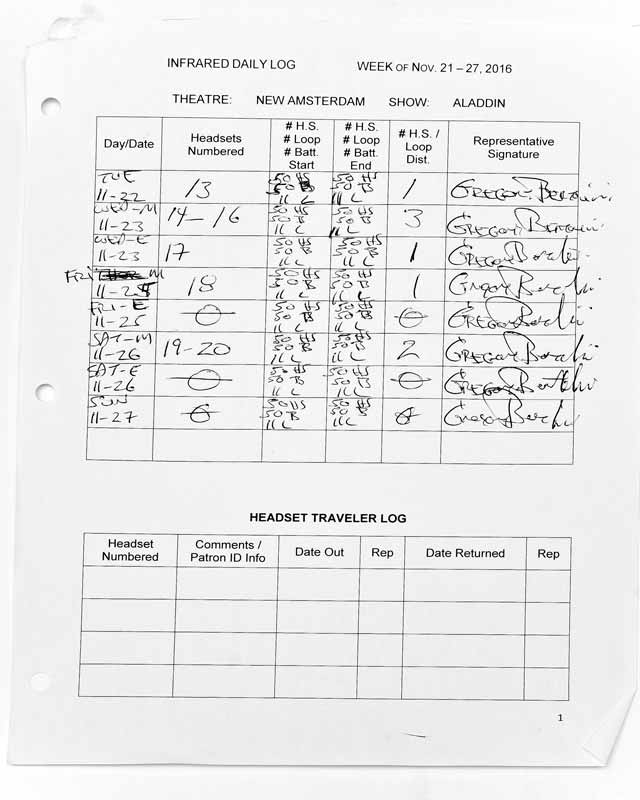 INFRARED DAILY LOG WEEK OF NOV. 21 – 27, 2016
THEATRE: NEW AMSTERDAM SHOW: ALADDIN
Day/Date Headsets Numbered # H.S. # Loop # Batt. Start # H.S. # Loop # Batt. End # H.S. / Loop Dist. Representative Signature
TUE 11-22 13 50 HS 50 B 11 L 50 HS 50 B 11 L 1 GREGORY
WED-M 11-23 14-16 50 HS 50 B 11 L 50 HS 50 B 11 L 3 GREGORY
WED-E 11-23 17 50 HS 50 B 11 L 50 HS 50 B 11 L 1 GREGORY
FRI M 11-25 18 50 HS 50 B 11 L 50 HS 50 B 11 L 1 Gregory
FRI-E 11-25 0 50 HS 50 B 11 L 50 HS 50 B 11 L 0 GREGORY
SAT-M 11-26 19-20 50 HS 50 B 11 L 50 HS 50 B 11 L 2 GREGORY
SAT-E 11-26 0 50 HS 50 B 11 L 50 HS 50 B 11 L 0 GREGORY
SUN 11-27 0 50 HS 50 B 11 L 50 HS 50 B 11 L 0 Gregory
HEADSET TRAVELER LOG
Headset Numbered Comments / Patron ID Info Date Out Rep Date Returned Rep
1